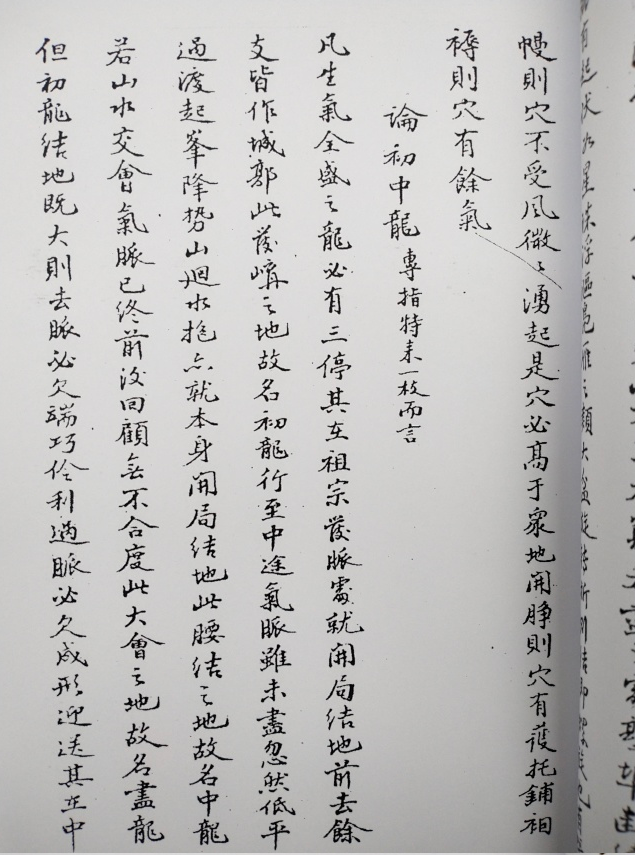 幔則穴不受風微々湧起是穴必髙于衆地開睁則穴有護托鋪裀
褥則穴有餘氣
論初中龍專指特来一枝而言
凡生氣全盛之龍必有三停其在祖宗發脈處就開局結地前去餘
支皆作城郭此發嶂之地故名初龍行至中途氣脈雖未盡忽然低平
過渡起峯降势山廻水抱亦就本身開局結地此腰結之地故名中龍
若山水交會氣脈已終前後回顧無不合度此大會之地故名盡龍
但初龍結地既大則去脈必欠端巧伶利過脈必欠成形迎送其在中